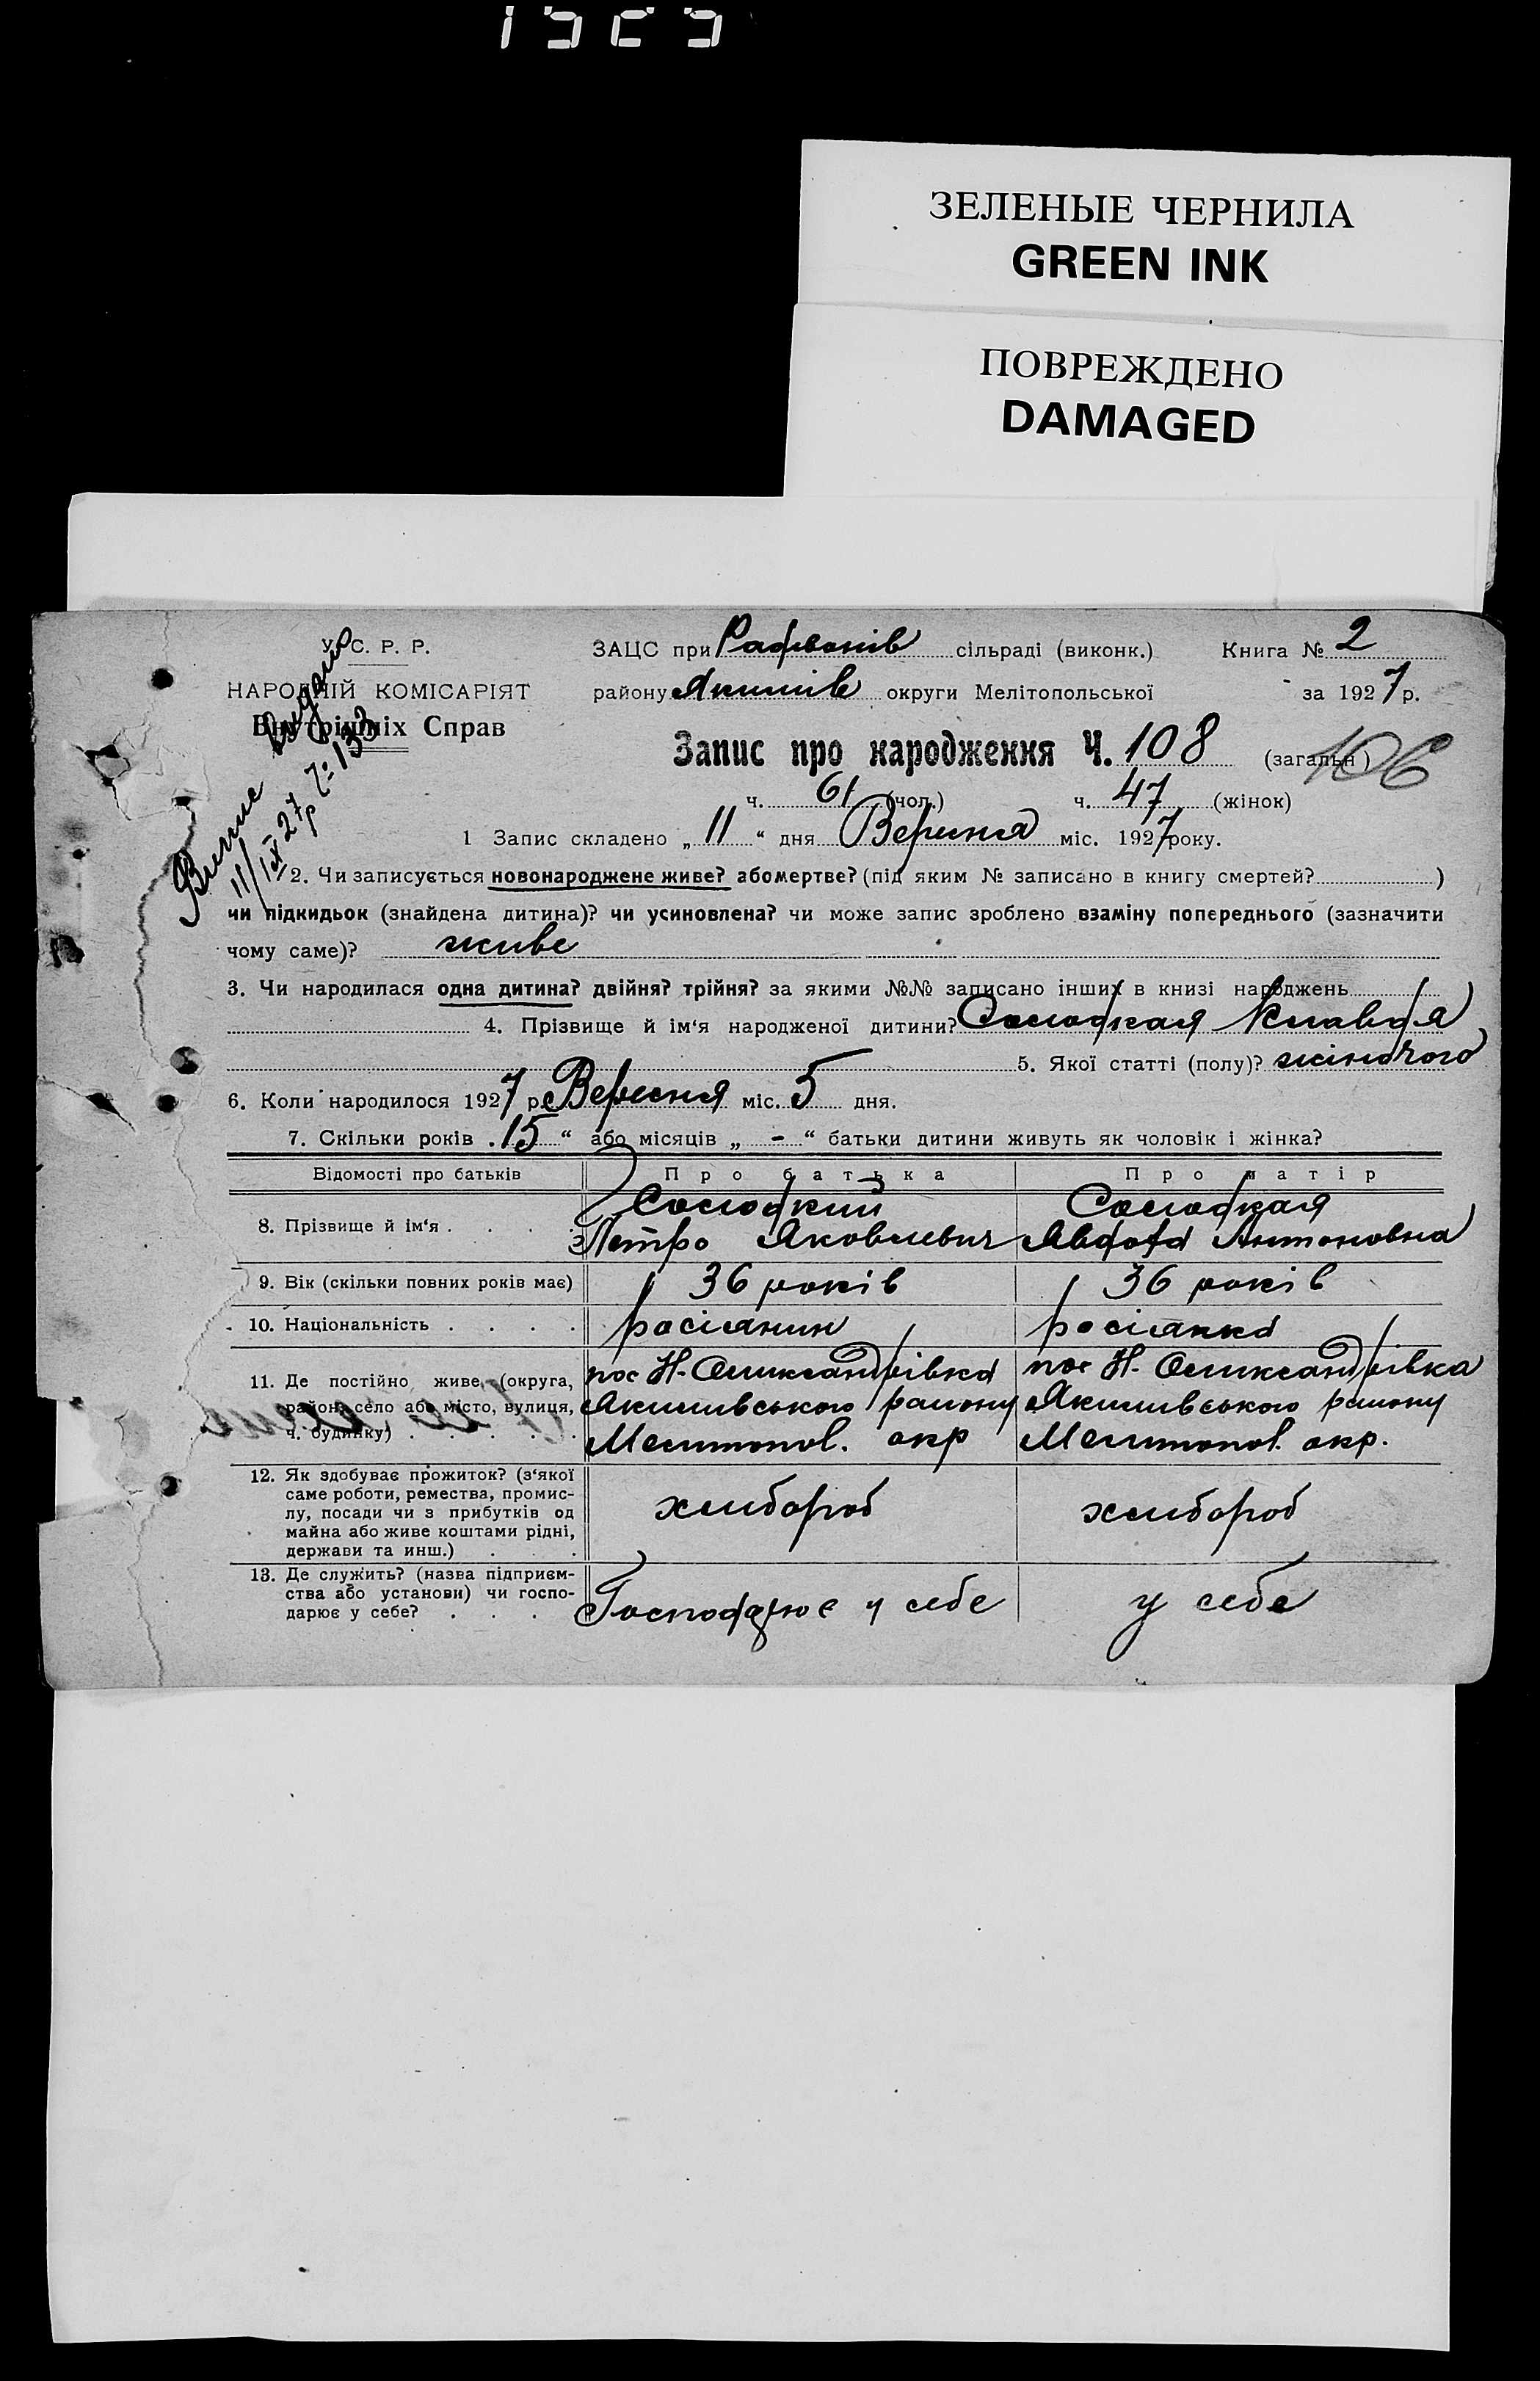 ЗЕЛЕНЫЕ ЧЕРНИЛА
GREEN INK
ПОВРЕЖДЕНО
DAMAGED
У. С. Р. Р.
НАРОДНІЙ КОМІСАРІЯТ
Внутрішніх Справ
Випис видано
11/IX 27 р Ч: 133
ЗАЦС при Радивонів сільраді (виконк.) Книга № 2
району Якимів округи Мелітопольської за 1927 р.
Запис про народження Ч. 108 (загальн) 106
ч. 61 (чол.) ч. 47 (жінок)
1 Запис складено „ 11 “ дня Вересня міс. 1927 року.
2. Чи записується новонароджене живе? або мертве? (під яким № записано в книгу смертей? )
чи підкидьок (знайдена дитина)? чи усиновлена? чи може запис зроблено взаміну попереднього (зазначити
чому саме)? живе
3. Чи народилася одна дитина? двійня? трійня? за якими №№ записано інших в книзі народжень
4. Прізвище й ім'я народженої дитини? Солодкая Клавдя
5. Якої статті (полу)? жіночого
6. Коли народилося 1927 р. Вересня міс. 5 дня.
7. Скільки років „ 15 “ або місяців „ - “ батьки дитини живуть як чоловік і жінка?
Відомості про батьків Про батька Про матір
8. Прізвище й ім'я . . . . Солодкий Солодкая
Петро Яковлевич Авдотя Антоновна
9. Вік (скільки повних років має) 36 років 36 років
10. Національність . . . . росіянин росіянка
11. Де постійно живе (округа, пос Н-Олександрівка пос Н-Олександрівка
район, село або місто, вулиця, Якимівського району Якимівського району
ч. будинку) . . . . . Мелитопол. окр Мелитопол. окр.
12. Як здобуває прожиток? (з'якої
саме роботи, ремества, промис-
лу, посади чи з прибутків од хлибороб хлибороб
майна або живе коштами рідні,
держави та инш.) . . .
13. Де служить? (назва підприєм-
ства або установи) чи госпо- Господарює у себе у себе
дарює у себе? . . . .